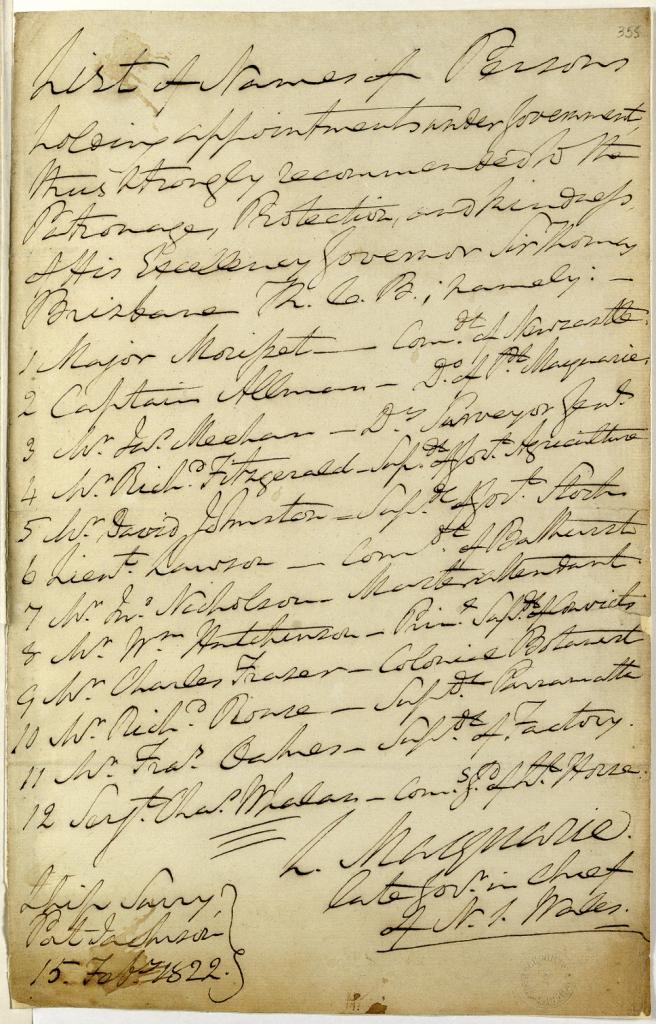 355
List of Names of Persons
holding appointments under Government,
thus strongly recommended to the
Patronage, Protection, and kindness
of His Excellency Governor Sir Thomas
Brisbane K. C. B.; namely: —
1 Major Morisset — Comdt. of Newcastle.
2 Captain Allman — Do. of Pt. Macquarie.
3 Mr. Jas. Meehan — Dy. Surveyor Genl.
4 Mr. Richd. Fitzgerald — Supdt. of Govt. Agriculture
5 Mr. David Johnston — Supdt. of Govt. Stock
6 Lieut. Lawson — Comdt. of Bathurst
7 Mr. Jno. Nicholson — Master attendant
8 Mr. Wm. Hutchinson — Prinl. Supdt. of Convicts
9 Mr. Charles Frazer — Colonial Botanist
10 Mr. Richd. Rouse — Supdt. Parramatta
11 Mr. Fras. Oakes — Supdt. of Factory.
12 Sergt. Chas. Whalan — Comg. of Lt. Horse.
L. Macquarie.
late Govr. in Chief
of N. S. Wales.
Ship Surry
Port Jackson
15. Feby. 1822.